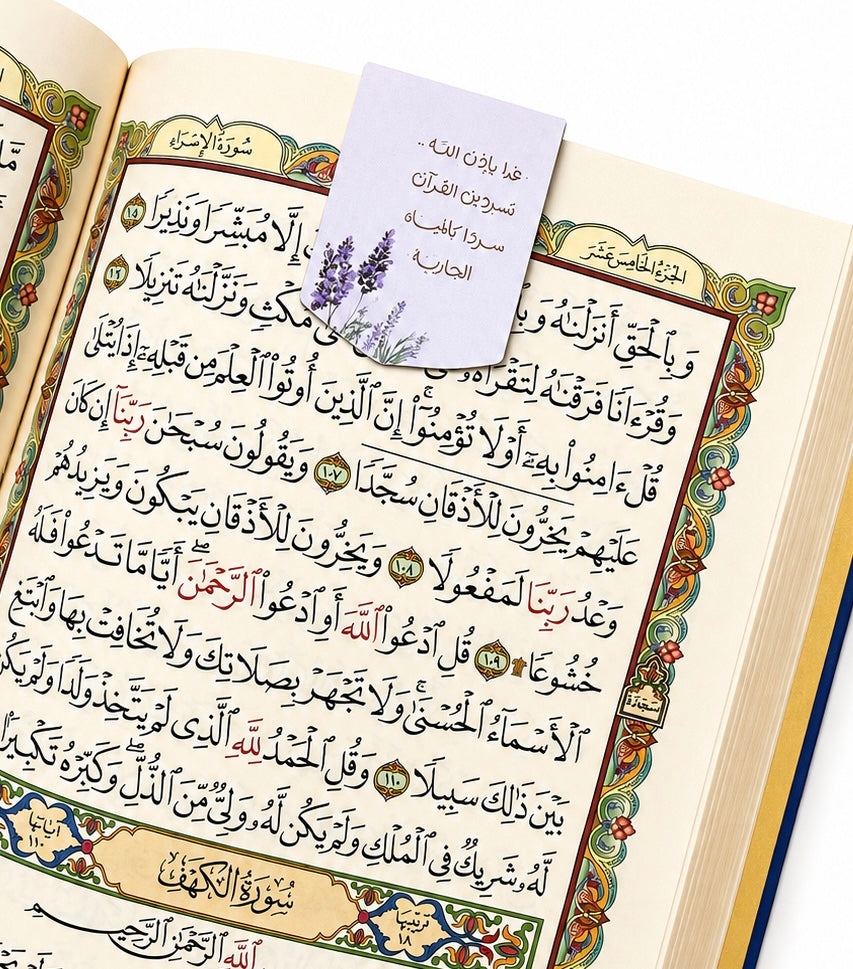 سُورَةُ الإِسْرَاءِ
الجُزْءُ الخَامِسَ عَشَرَ
غدا بإذن الله ..
تسردين القرآن
سردا كالمياه
الجارية
وَبِٱلْحَقِّ أَنزَلْنَٰهُ إِلَّا مُبَشِّرًا وَنَذِيرًا ١٥
وَقُرْءَانًا فَرَقْنَٰهُ لِتَقْرَأَهُۥ مُكْثٍ وَنَزَّلْنَٰهُ تَنزِيلًا ١٦
قُلْ ءَامِنُوا۟ بِهِۦٓ أَوْ لَا تُؤْمِنُوٓا۟ ۚ إِنَّ ٱلَّذِينَ أُوتُوا۟ ٱلْعِلْمَ مِن قَبْلِهِۦٓ إِذَا يُتْلَىٰ
عَلَيْهِمْ يَخِرُّونَ لِلْأَذْقَانِ سُجَّدًا ١٠٧ وَيَقُولُونَ سُبْحَٰنَ رَبِّنَآ إِن كَانَ
وَعْدُ رَبِّنَا لَمَفْعُولًا ١٠٨ وَيَخِرُّونَ لِلْأَذْقَانِ يَبْكُونَ وَيَزِيدُهُمْ
خُشُوعًا ۩ ١٠٩ قُلِ ٱدْعُوا۟ ٱللَّهَ أَوِ ٱدْعُوا۟ ٱلرَّحْمَٰنَ ۖ أَيًّا مَّا تَدْعُوا۟ فَلَهُ
ٱلْأَسْمَآءُ ٱلْحُسْنَىٰ ۚ وَلَا تَجْهَرْ بِصَلَاتِكَ وَلَا تُخَافِتْ بِهَا وَٱبْتَغِ
بَيْنَ ذَٰلِكَ سَبِيلًا ١١٠ وَقُلِ ٱلْحَمْدُ لِلَّهِ ٱلَّذِى لَمْ يَتَّخِذْ وَلَدًا وَلَمْ يَكُن
لَّهُۥ شَرِيكٌ فِى ٱلْمُلْكِ وَلَمْ يَكُن لَّهُۥ وَلِىٌّ مِّنَ ٱلذُّلِّ ۖ وَكَبِّرْهُ تَكْبِيرًا
ترتيبها ١٨
سُورَةُ الكَهْفِ
آياتها ١١٠
ٱللَّهِ ٱلرَّحْمَٰنِ ٱلرَّحِيمِ